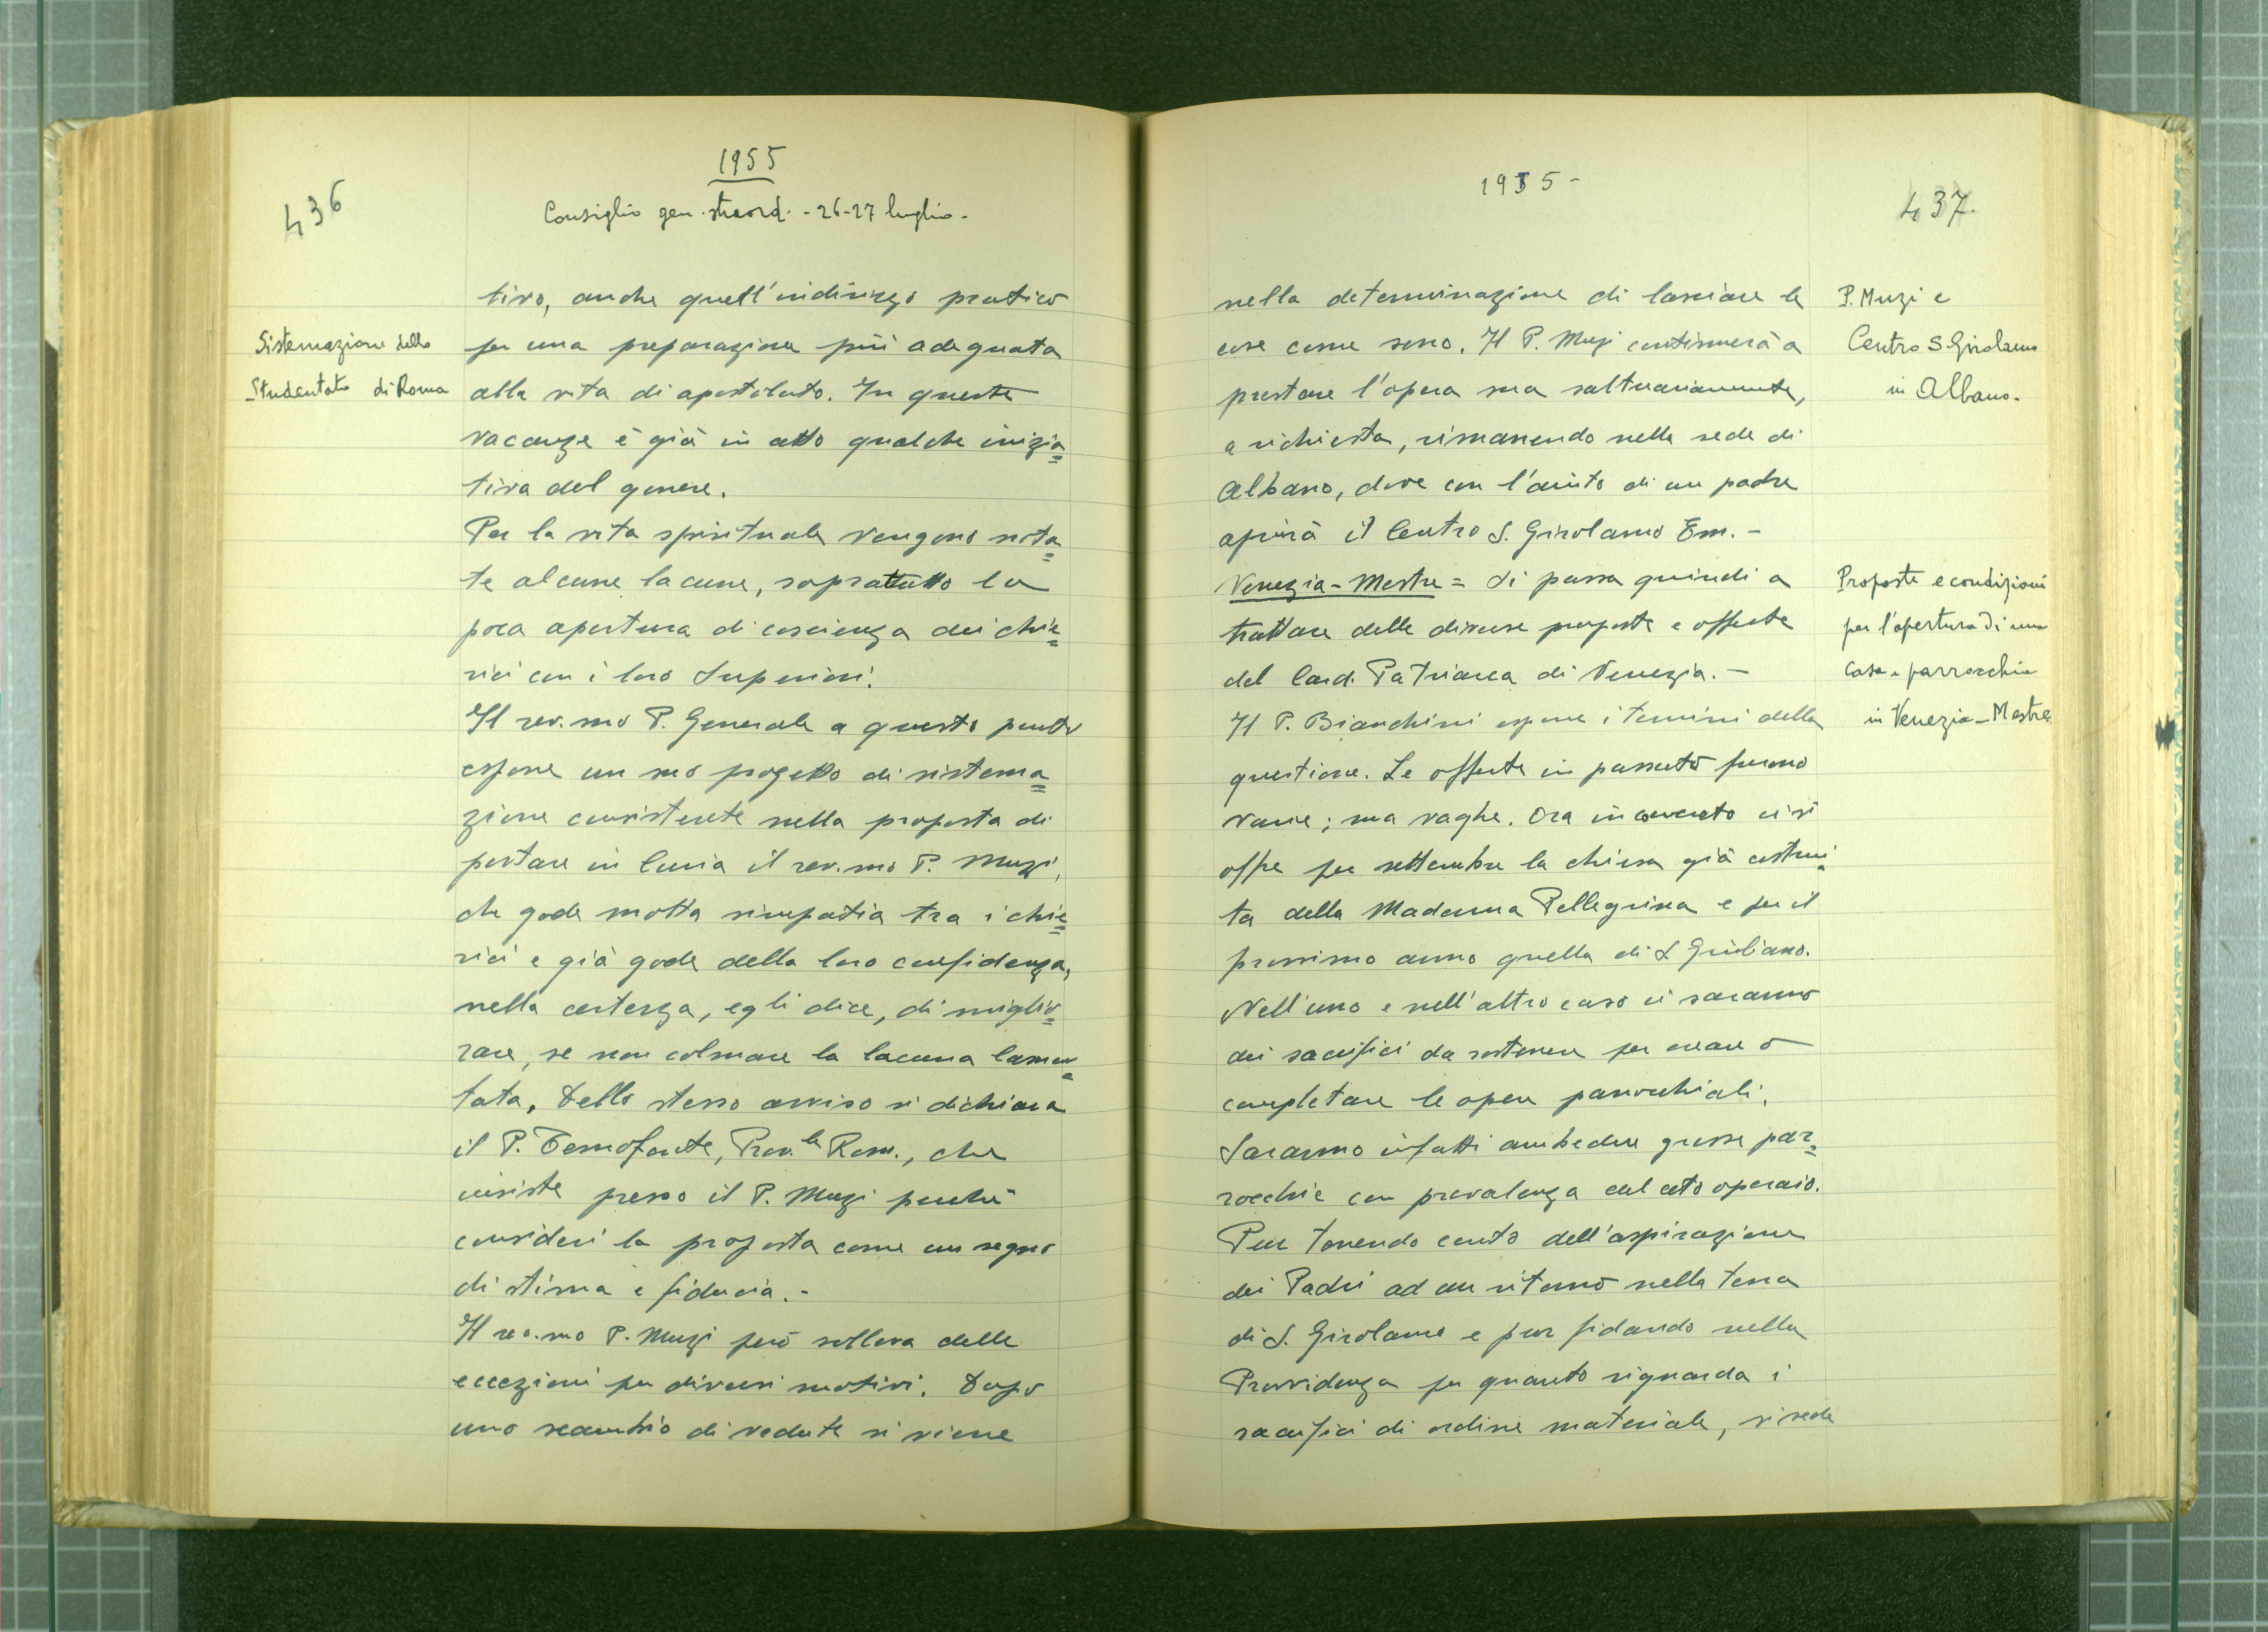 436
1955
Consiglio gen. straord. - 26-27 luglio -
Sistemazione dello
Studentato di Roma
tivo, anche quell'indirizzo pratico
per una preparazione più adeguata
alla vita di apostolato. In queste
vacanze è già in atto qualche inizia=
tiva del genere.
Per la vita spirituale vengono nota=
te alcune lacune, soprattutto la
poca apertura di coscienza dei chie=
rici con i loro Superiori.
Il rev.mo P. Generale a questo punto
espone un suo progetto di sistema=
zione consistente nella proposta di
portare in Curia il rev.mo P. Muzi,
che gode molta simpatia tra i chie=
rici e già gode della loro confidenza,
nella certezza, egli dice, di miglio=
rare, se non colmare la lacuna lamen=
tata. Dello stesso avviso si dichiara
il P. Temofonte, Prov.le Rom., che
insiste presso il P. Muzi perché
consideri la proposta come un segno
di stima e fiducia. -
Il rev.mo P. Muzi però solleva delle
eccezioni per diversi motivi. Dopo
uno scambio di vedute si viene
1955 -
437.
nella determinazione di lasciare le
cose come sono. Il P. Muzi continuerà a
prestare l'opera sua saltuariamente,
a richiesta, rimanendo nella sede di
Albano, dove con l'aiuto di un padre
aprirà il Centro S. Girolamo Em. -
Venezia - Mestre = Si passa quindi a
trattare delle diverse proposte e offerte
del Card. Patriarca di Venezia. -
Il P. Bianchini espone i termini della
questione. Le offerte in passato furono
varie; ma vaghe. Ora in concreto ci si
offre per settembre la chiesa già costrui=
ta della Madonna Pellegrina e per il
prossimo anno quella di S Giuliano.
Nell'uno e nell'altro caso ci saranno
dei sacrifici da sostenere per creare o
completare le opere parrocchiali.
Saranno infatti ambedue grosse par=
rocchie con prevalenza del ceto operaio.
Pur tenendo conto dell'aspirazione
dei Padri ad un ritorno nella terra
di S. Girolamo e pur fidando nella
Provvidenza per quanto riguarda i
sacrifici di ordine materiale, si vede
P. Muzi e
Centro S. Girolamo
in Albano.
Proposte e condizioni
per l'apertura di una
casa e parrocchia
in Venezia - Mestre